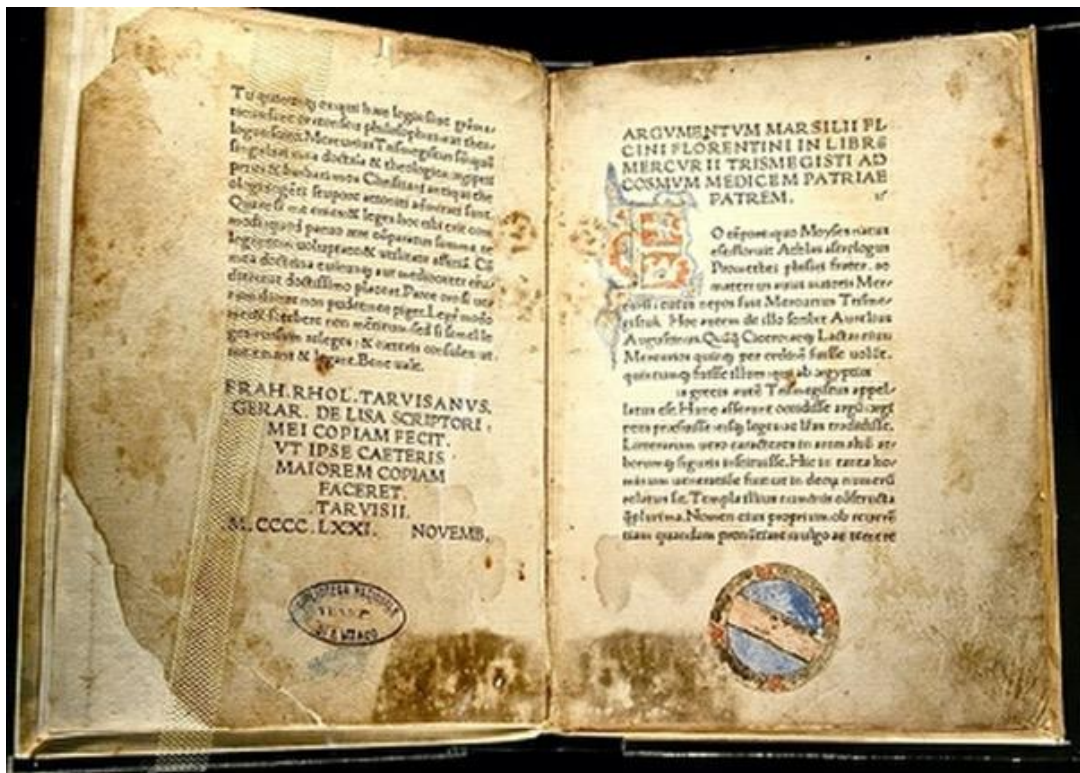 Tu quicunq; es qui hæc legis siue gramma
ticus siue orator seu philosophus aut theo
logus scito. Mercurius Trismegistus sũ quẽ
singulari mea doctrĩa & theologica: ægyptii
prius & barbari: mox Christiani antiqui the
ologi ingẽti stupore attoniti admirati sunt.
Quare si me emes & leges hoc tibi erit com
modi: quod paruo ære cõparatus summa te
legentem uoluptate & utilitate afficiã. Cũ
mea doctrina cuicunq; aut mediocriter eru
dito aut doctissimo placeat. Parce oro si uerũ
non pudet nec piget. Lege modo
me: & fatebere non mẽtitum. sed si semel le
ges rursum releges: & cæteris consules ut
me emant & legant. Bene uale.
FRAN. RHOL. TARVISANVS.
GERAR. DE LISA SCRIPTORI:
MEI COPIAM FECIT.
VT IPSE CAETERIS
MAIOREM COPIAM
FACERET.
TARVISII.
M. CCCC. LXXI. NOVEMB.
BIBLIOTECA NAZIONALE
ARGVMENTVM MARSILII FI,
CINI FLORENTINI IN LIBRŨ
MERCVRII TRISMEGISTI AD
COSMVM MEDICEM PATRIAE
PATREM.
O tẽpore quo Moyses natus
est floruit Athlas astrologus
Promethei physici frater. ac
maternus auus maioris Mer-
curii: cuius nepos fuit Mercurius Trisme-
gistus. Hoc autem de illo scribit Aurelius
Augustinus. Quãq̃ Cicero atq; Lactantius
Mercurios quinq; per ordinẽ fuisse uolũt.
quintumq; fuisse illum qui ab ægyptiis
a græcis autẽ Trismegistus appel-
latus est. Hunc asserunt occidisse argũ: ægi
ptiis præfuisse: eisq; leges ac lr̃as tradidisse.
Litterarum uero caracteres in animaliũ ar-
borumq; figuris instituisse. Hic in tanta ho-
minum ueneratione fuit: ut in deoꝝ numerũ
relatus sit. Templa illius numine cõstructa
q̃plurima. Nomen eius proprium ob reuerẽ
tiam quandam pronũtiare uulgo ac temere